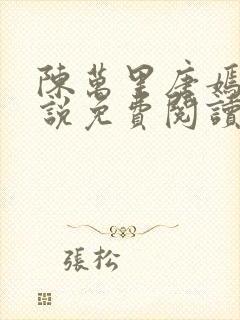 陳萬里唐嫣
說免費閱讀
張松